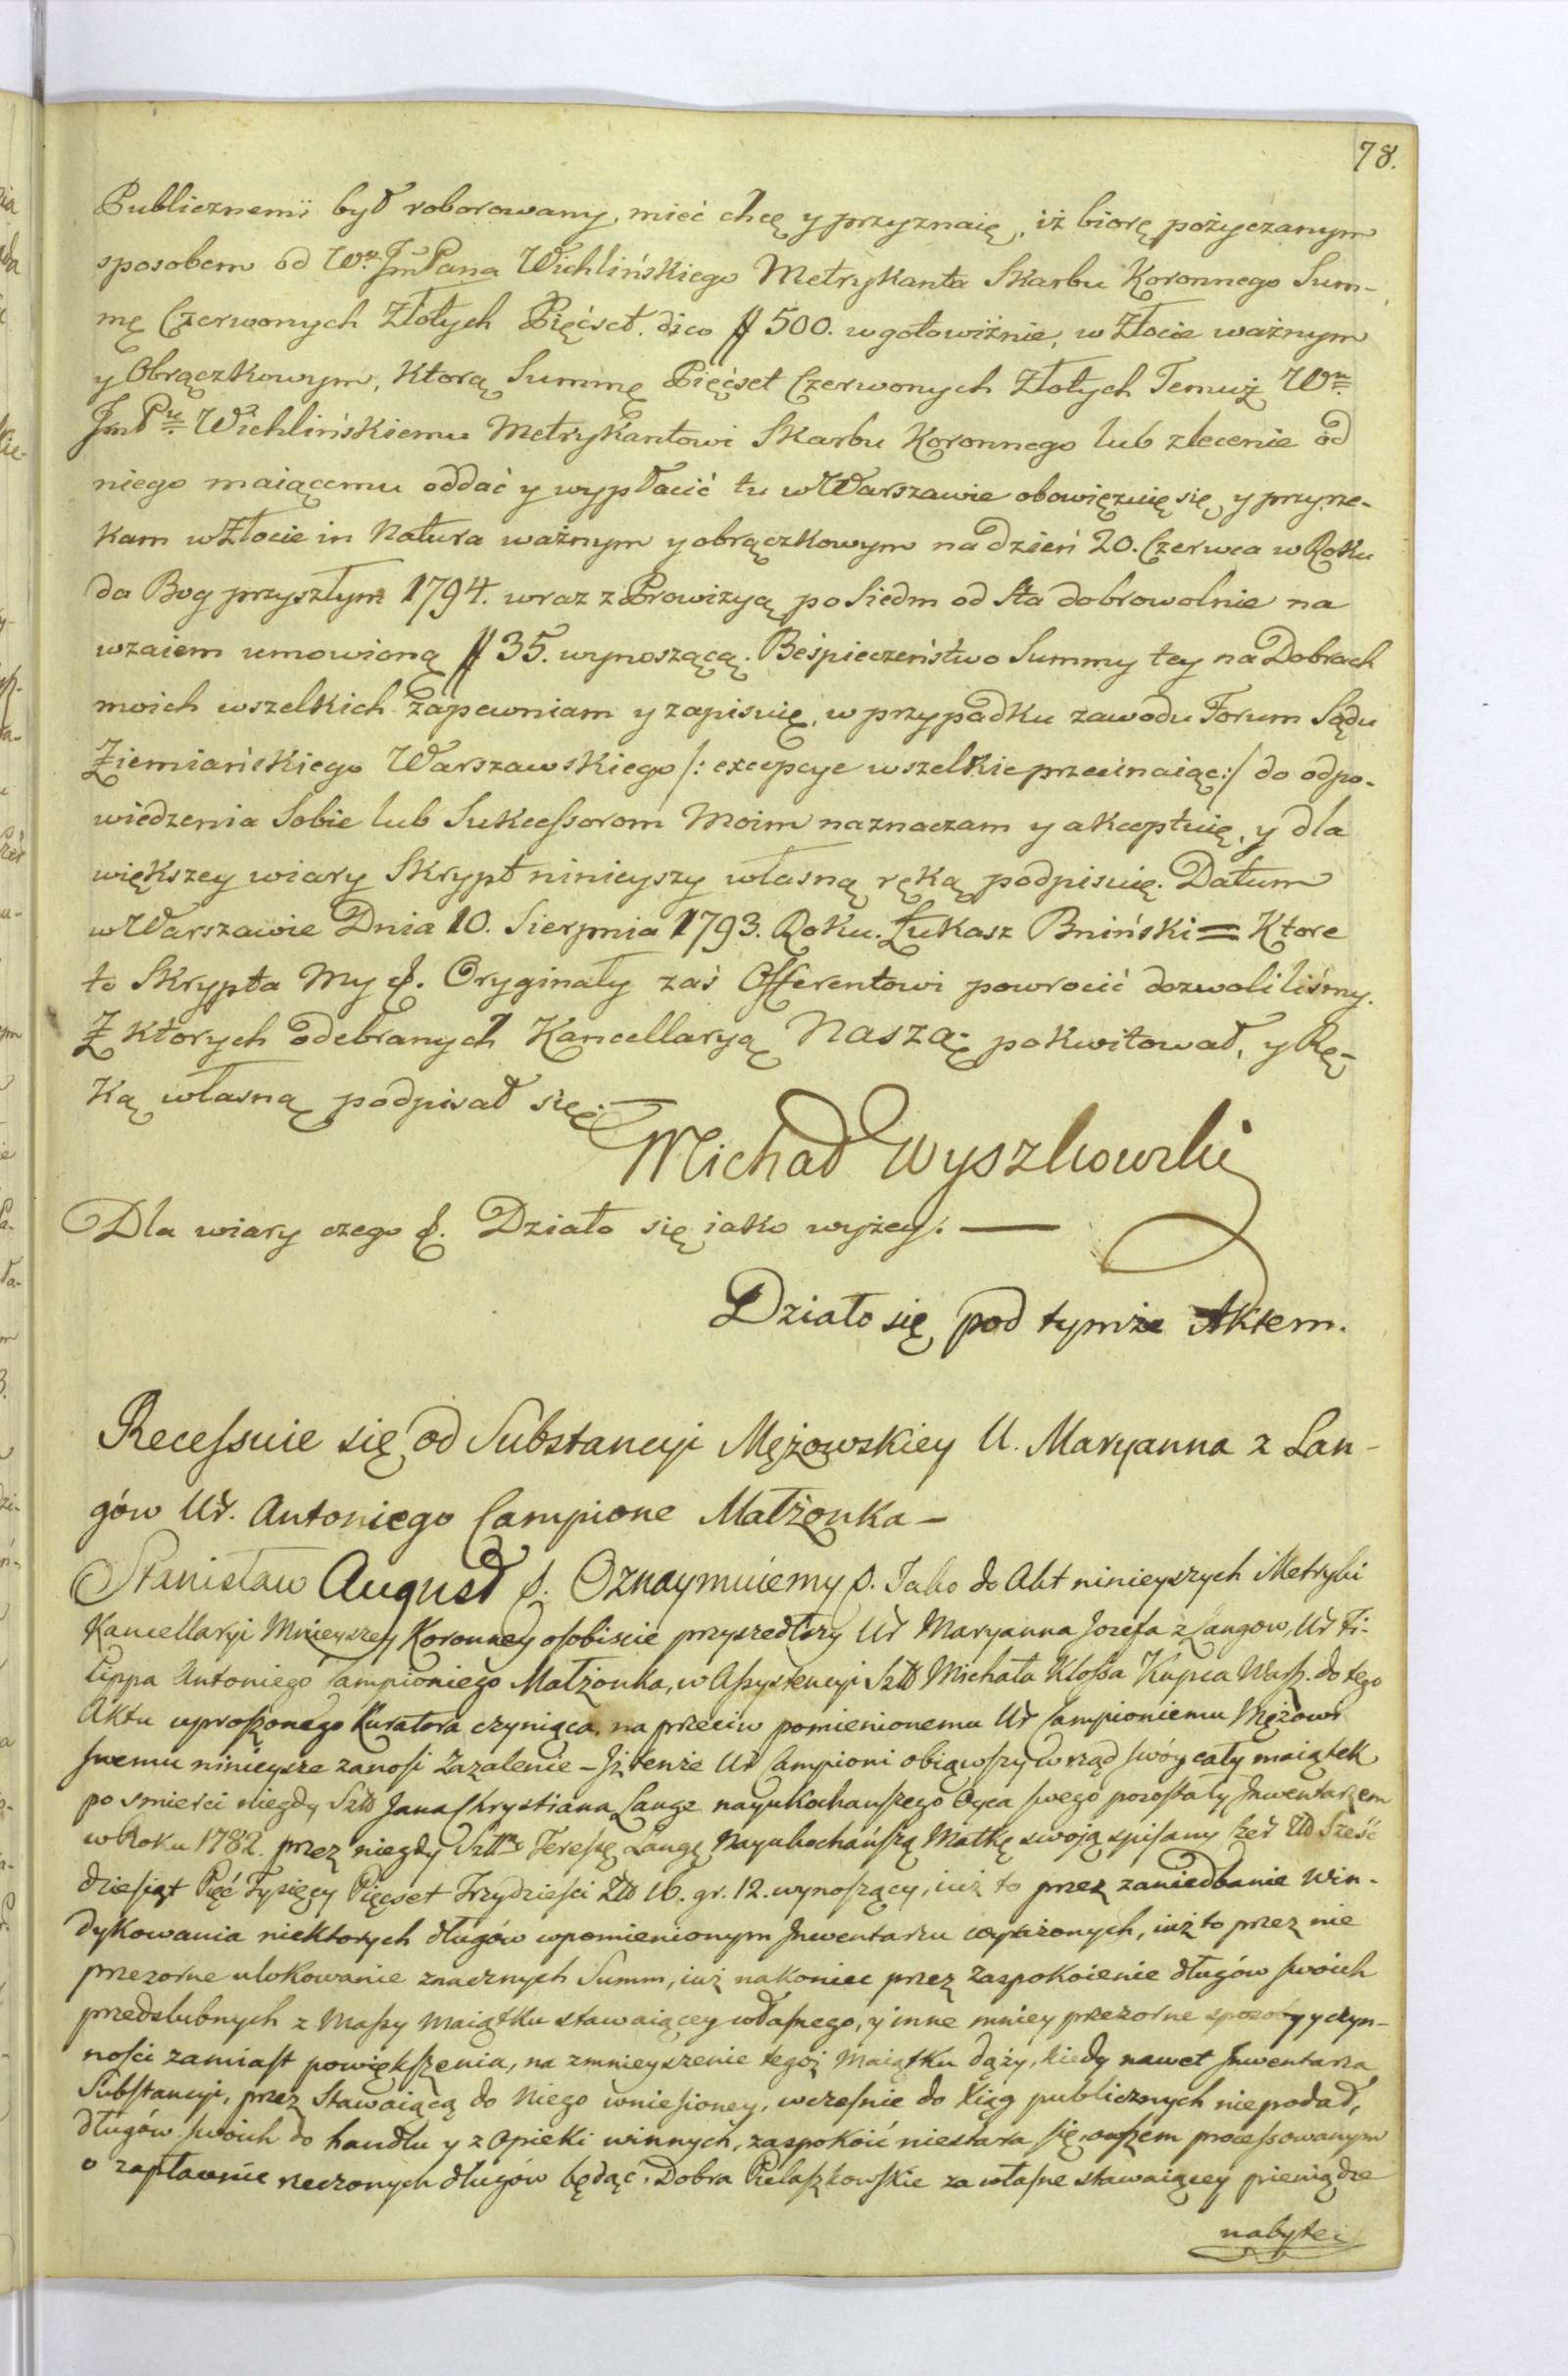 78.
Publicznemi był roborowany, mieć chcę y przyznaię, iż biorę pożyczanym
sposobem od Wgo JmPana Wichlińskiego Metrykanta Skarbu Koronnego Sum-
mę Czerwonych Złotych Pięćset. dico # 500. w gotowiźnie, w Złocie ważnym
y Obrączkowym, którą Summę Pięćset Czerwonych Złotych Temuż Wmu
JmPu Wichlińskiemu Metrykantowi Skarbu Koronnego lub zlecenie od
niego maiącemu oddać y wypłacić tu w Warszawie obowięzuię się y przyrze-
kam w Złocie in Natura ważnym y obrączkowym na dzień 20. Czerwca w Roku
da Bog przyszłym 1794. wraz z Prowizyą po Siedm od Sta dobrowolnie na
wzaiem umowioną # 35. wynoszącą. Beśpieczeństwo Summy tey na Dobrach
moich wszelkich zapewniam y zapisuię, w przypadku zawodu Forum Sądu
Ziemiańskiego Warszawskiego /: excepcye wszelkie przecinaiąc :/ do odpo-
wiedzenia Sobie lub Sukcessorom Moim naznaczam y akceptuię, y dla
większey wiary Skrypt ninieyszy własną ręką podpisuię. Datum
w Warszawie Dnia 10. Sierpnia 1793. Roku. Łukasz Bniński = Ktore
to Skrypta My &. Oryginały zaś Offerentowi powrocić dozwoliliśmy.
Z ktorych odebranych Kancellaryą Naszą pokwitował, y Rę-
ką własną podpisał się. —
Michał Wyszkowski
Dla wiary czego &. Działo się iako wyżey. —
Działo się pod tymże Aktem.
Recessuie się od Substancyi Mężowskiey U. Maryanna z Lan-
gów Ur. Antoniego Campione Małżonka –
Stanisław August &. Oznaymuiemy &. Iako do Akt ninieyszych Metryki
Kancellaryi Mnieyszey Koronney osobiscie przyszedłszy Ur Maryanna Jozefa z Langow, Ur Fi-
lippa Antoniego Campioniego Małżonka, w Assystencyi Szltt Michała Klossa Kupca Warsz. do tego
Aktu uproszonego Kuratora czyniąca, na przeciw pomienionemu Ur Campioniemu Mężowi
swemu ninieysze zanosi Zażalenie – Jż tenże Ur Campioni obiąwszy w rząd swóy cały maiątek
po smierci niegdy Szltt Jana Chrystiana Lange nayukochańszego Oyca swego pozostały Inwentarzem
w Roku 1782. przez niegdy Teresę Langę Nayukochańszą Matkę swoią spisany Sześć
dziesiąt Pięć Tysięcy Pięcset Trzydziesci 16. gr. 12. wynoszący, iuż to przez zaniedbanie win-
dykowania niektorych długów w pomienionym Inwentarzu wyrażonych, iuż to przez nie
przezorne ulokowanie znacznych Summ, iuż nakoniec przez Zaspokoienie długów swoich
przedslubnych z Massy Maiątku stawaiącey własnego, y inne mniey przezorne sposoby y czyn-
ności zamiast powiększenia, na zmnieyszenie tegoż Maiątku dąży, kiedy nawet Inwentarza
Substancyi, przez Stawaiącą do Niego wniesioney, wczesnie do Xiąg publicznych nie podał,
długów swoich do handlu y z Opieki winnych, zaspokoić niestara się, owszem processowanym
o zapłacenie rzeczonych długów będąc, Dobra Pielaszkowskie za własne stawaiącey pieniądze
nabyte